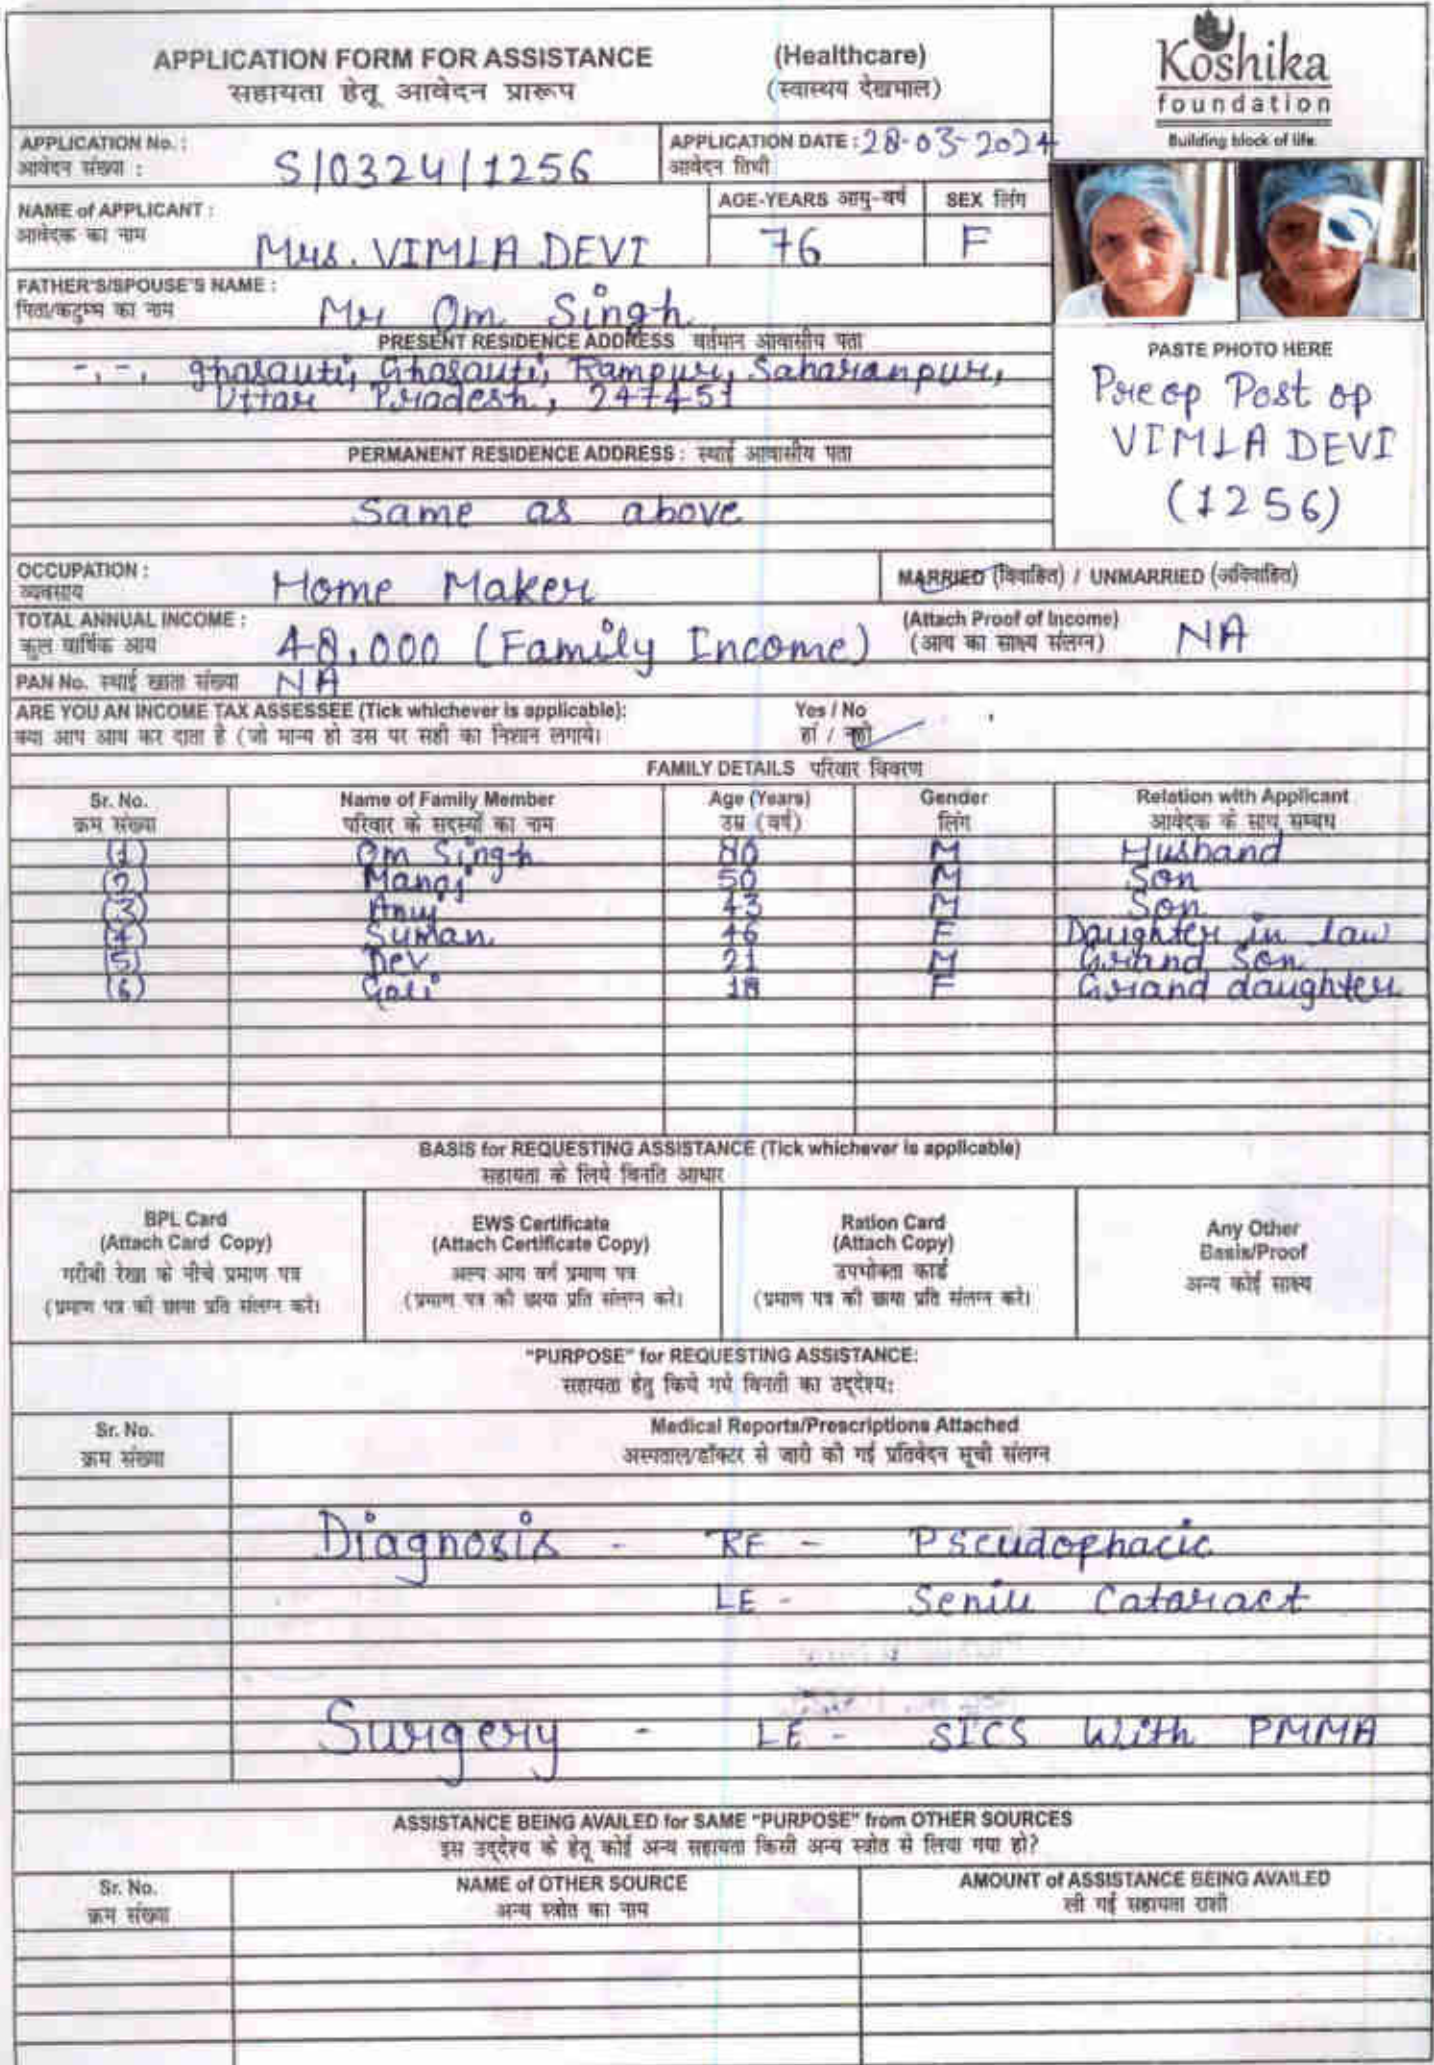 APPLICATION FORM FOR ASSISTANCE (Healthcare)
सहायता हेतू आवेदन प्रारूप (स्वास्थय देखभाल)
Koshika
foundation
Building block of life.
APPLICATION No. : S/0324/1256
आवेदन संख्या :
APPLICATION DATE : 28-03-2024
आवेदन तिथी
NAME of APPLICANT : Mrs. VIMLA DEVI
आवेदक का नाम
AGE-YEARS आयु-वर्ष 76
SEX लिंग F
FATHER'S/SPOUSE'S NAME : Mr Om Singh
पिता/कटुम्भ का नाम
PRESENT RESIDENCE ADDRESS वर्तमान आवासीय पता
-, -, ghasauti, Ghasauti, Rampur, Saharanpur,
Uttar Pradesh, 247451
PERMANENT RESIDENCE ADDRESS : स्थाई आवासीय पता
Same as above
PASTE PHOTO HERE
Preop Post op
VIMLA DEVI
(1256)
OCCUPATION : Home Maker
व्यवसाय
MARRIED (विवाहित) / UNMARRIED (अविवाहित)
TOTAL ANNUAL INCOME : 48,000 (Family Income)
कुल वार्षिक आय
(Attach Proof of Income) NA
(आय का साक्ष्य संलग्न)
PAN No. स्थाई खाता संख्या NA
ARE YOU AN INCOME TAX ASSESSEE (Tick whichever is applicable): Yes / No
क्या आप आय कर दाता है (जो मान्य हो उस पर सही का निशान लगाये। हां / नही
FAMILY DETAILS परिवार विवरण
Sr. No. Name of Family Member Age (Years) Gender Relation with Applicant
क्रम संख्या परिवार के सदस्यों का नाम उम्र (वर्ष) लिंग आवेदक के साथ सम्बध
(1) Om Singh 80 M Husband
(2) Manoj 50 M Son
(3) Anuj 43 M Son
(4) Suman 46 F Daughter in law
(5) Dev 21 M Grand Son
(6) 18 F Grand daughter
BASIS for REQUESTING ASSISTANCE (Tick whichever is applicable)
सहायता के लिये विनति आधार
BPL Card
(Attach Card Copy)
गरीबी रेखा के नीचे प्रमाण पत्र
(प्रमाण पत्र की छाया प्रति संलग्न करे।
EWS Certificate
(Attach Certificate Copy)
अल्प आय वर्ग प्रमाण पत्र
(प्रमाण पत्र की छाया प्रति संलग्न करे।
Ration Card
(Attach Copy)
उपभोक्ता कार्ड
(प्रमाण पत्र की छाया प्रति संलग्न करे।
Any Other
Basis/Proof
अन्य कोई साक्ष्य
"PURPOSE" for REQUESTING ASSISTANCE:
सहायता हेतु किये गये विनती का उद्देश्य:
Sr. No. Medical Reports/Prescriptions Attached
क्रम संख्या अस्पताल/डॉक्टर से जारी की गई प्रतिवेदन सूची संलग्न
Diagnosis - RE - Pseudophacic
LE - Senile Cataract
Surgery - LE - SICS With PMMA
ASSISTANCE BEING AVAILED for SAME "PURPOSE" from OTHER SOURCES
इस उद्देश्य के हेतू कोई अन्य सहायता किसी अन्य स्त्रोत से लिया गया हो?
Sr. No. NAME of OTHER SOURCE AMOUNT of ASSISTANCE BEING AVAILED
क्रम संख्या अन्य स्त्रोत का नाम ली गई सहायता राशी